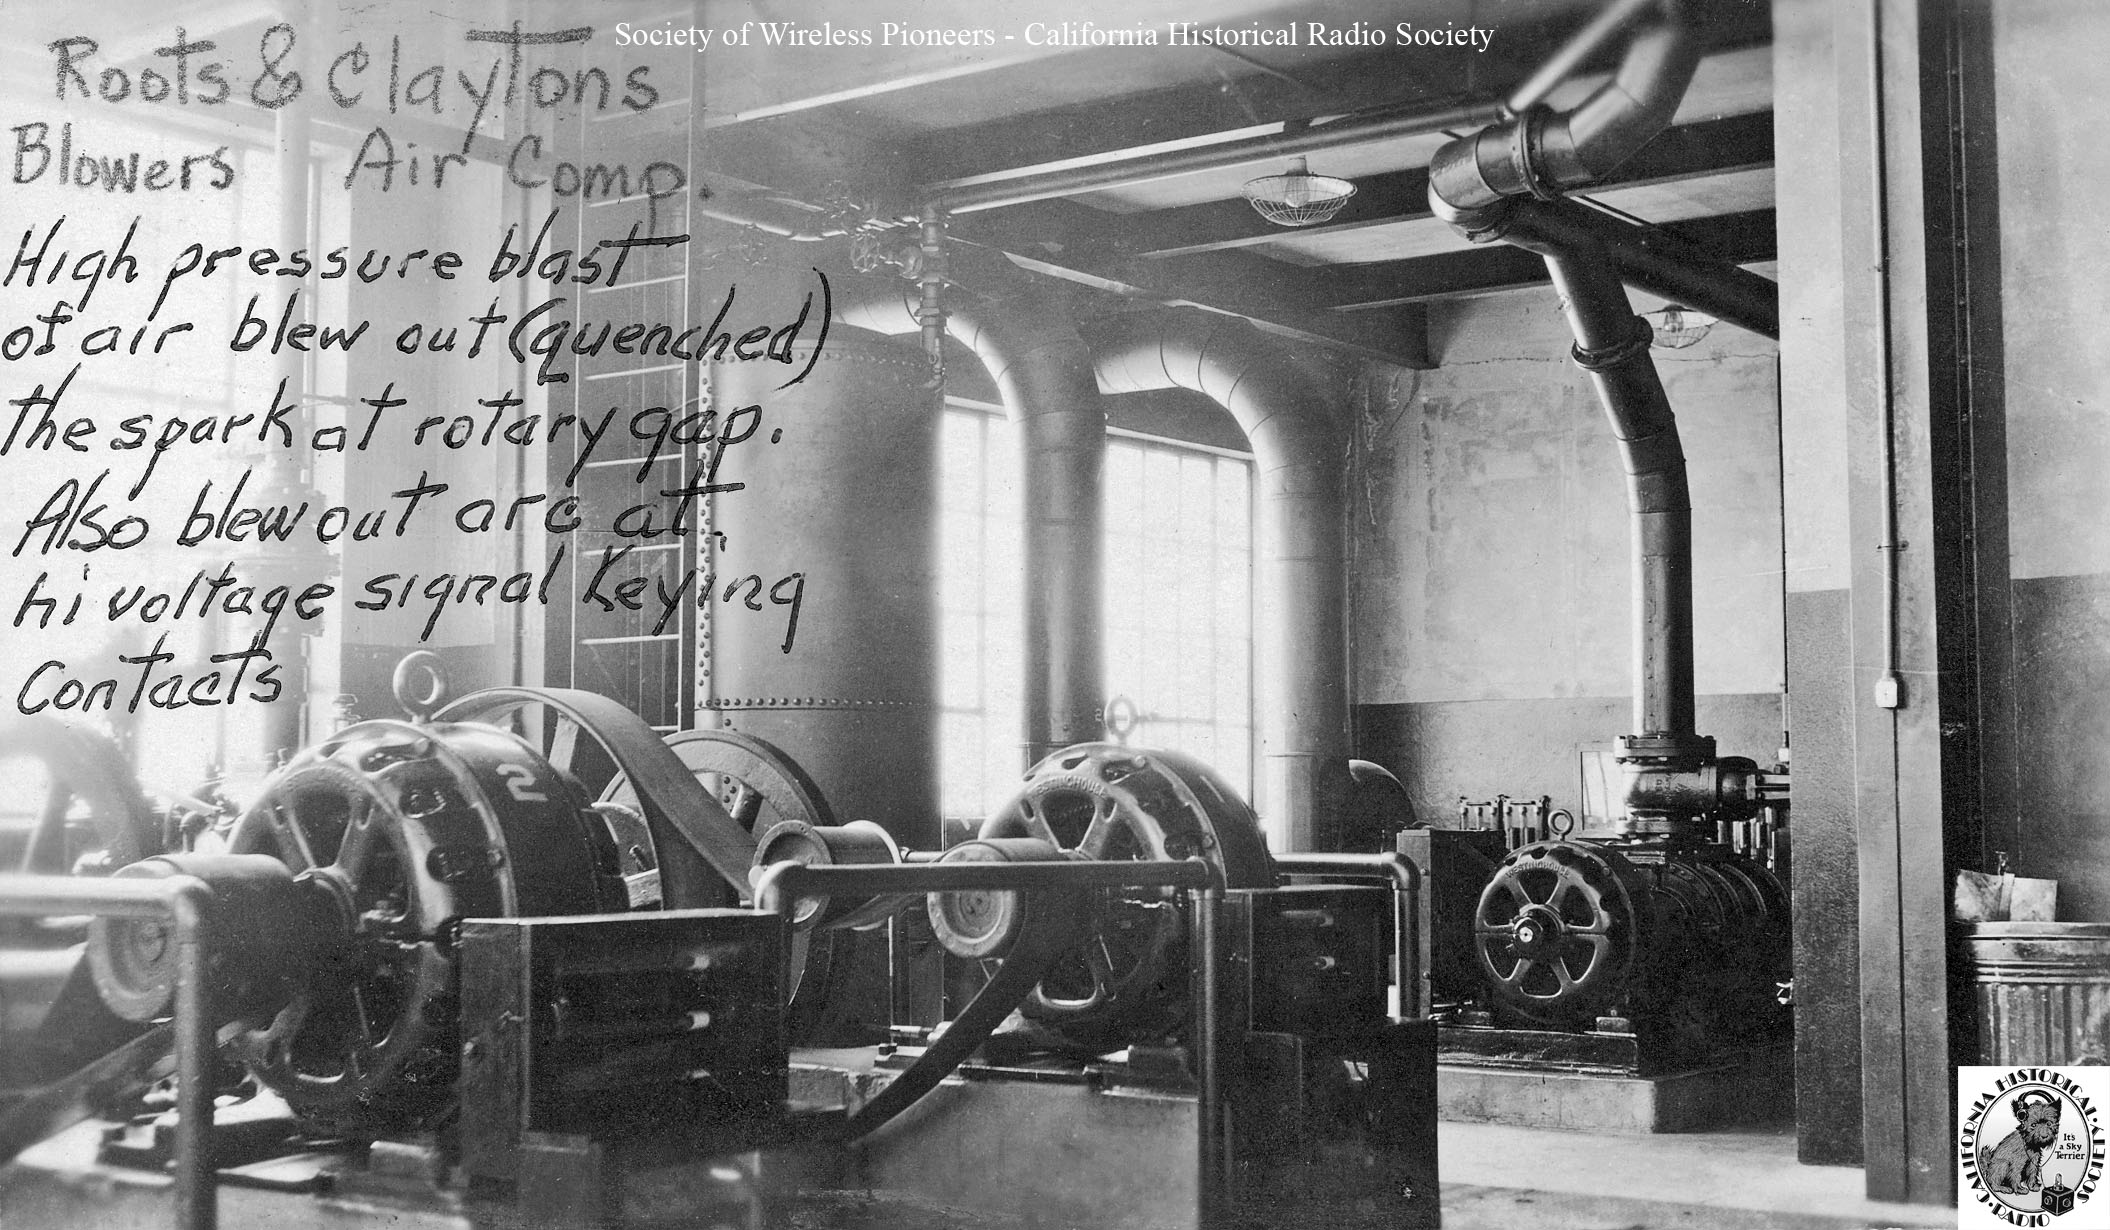 Society of Wireless Pioneers - California Historical Radio Society
Roots & Claytons
Blowers Air Comp.
High pressure blast
of air blew out (quenched)
the spark at rotary gap.
Also blew out arc at
hi voltage signal Keying
Contacts
2
WESTINGHOUSE
WESTINGHOUSE
CALIFORNIA HISTORICAL SOCIETY RADIO
It's
a Sky
Terrier